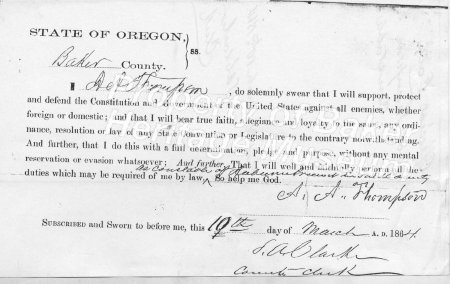 STATE OF OREGON,
ss.
Baker County.
I A. A. Thompson, do solemnly swear that I will support, protect
and defend the Constitution and Government of the United States against all enemies, whether
foreign or domestic; and that I will bear true faith, allegiance and loyalty to the same, any ordi-
nance, resolution or law of any State Convention or Legislature to the contrary notwithstanding.
And further, that I do this with a full determination, pledge and purpose, without any mental
reservation or evasion whatsoever; And further, That I will well and faithfully perform all the
as Constable of precinct in said county
duties which may be required of me by law, So help me God.
A. A. Thompson
SUBSCRIBED and SWORN to before me, this 19th day of March A. D. 1864.
Clark
County Clerk